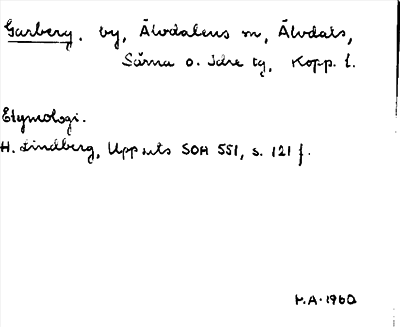 Garberg. by, Älvdalens m, Älvdals,
Särna o. Idre tg, Kopp. l.
Etymologi.
H. Lindberg, Upp.uts SOH 551, s. 121 f.
M.A. 1960